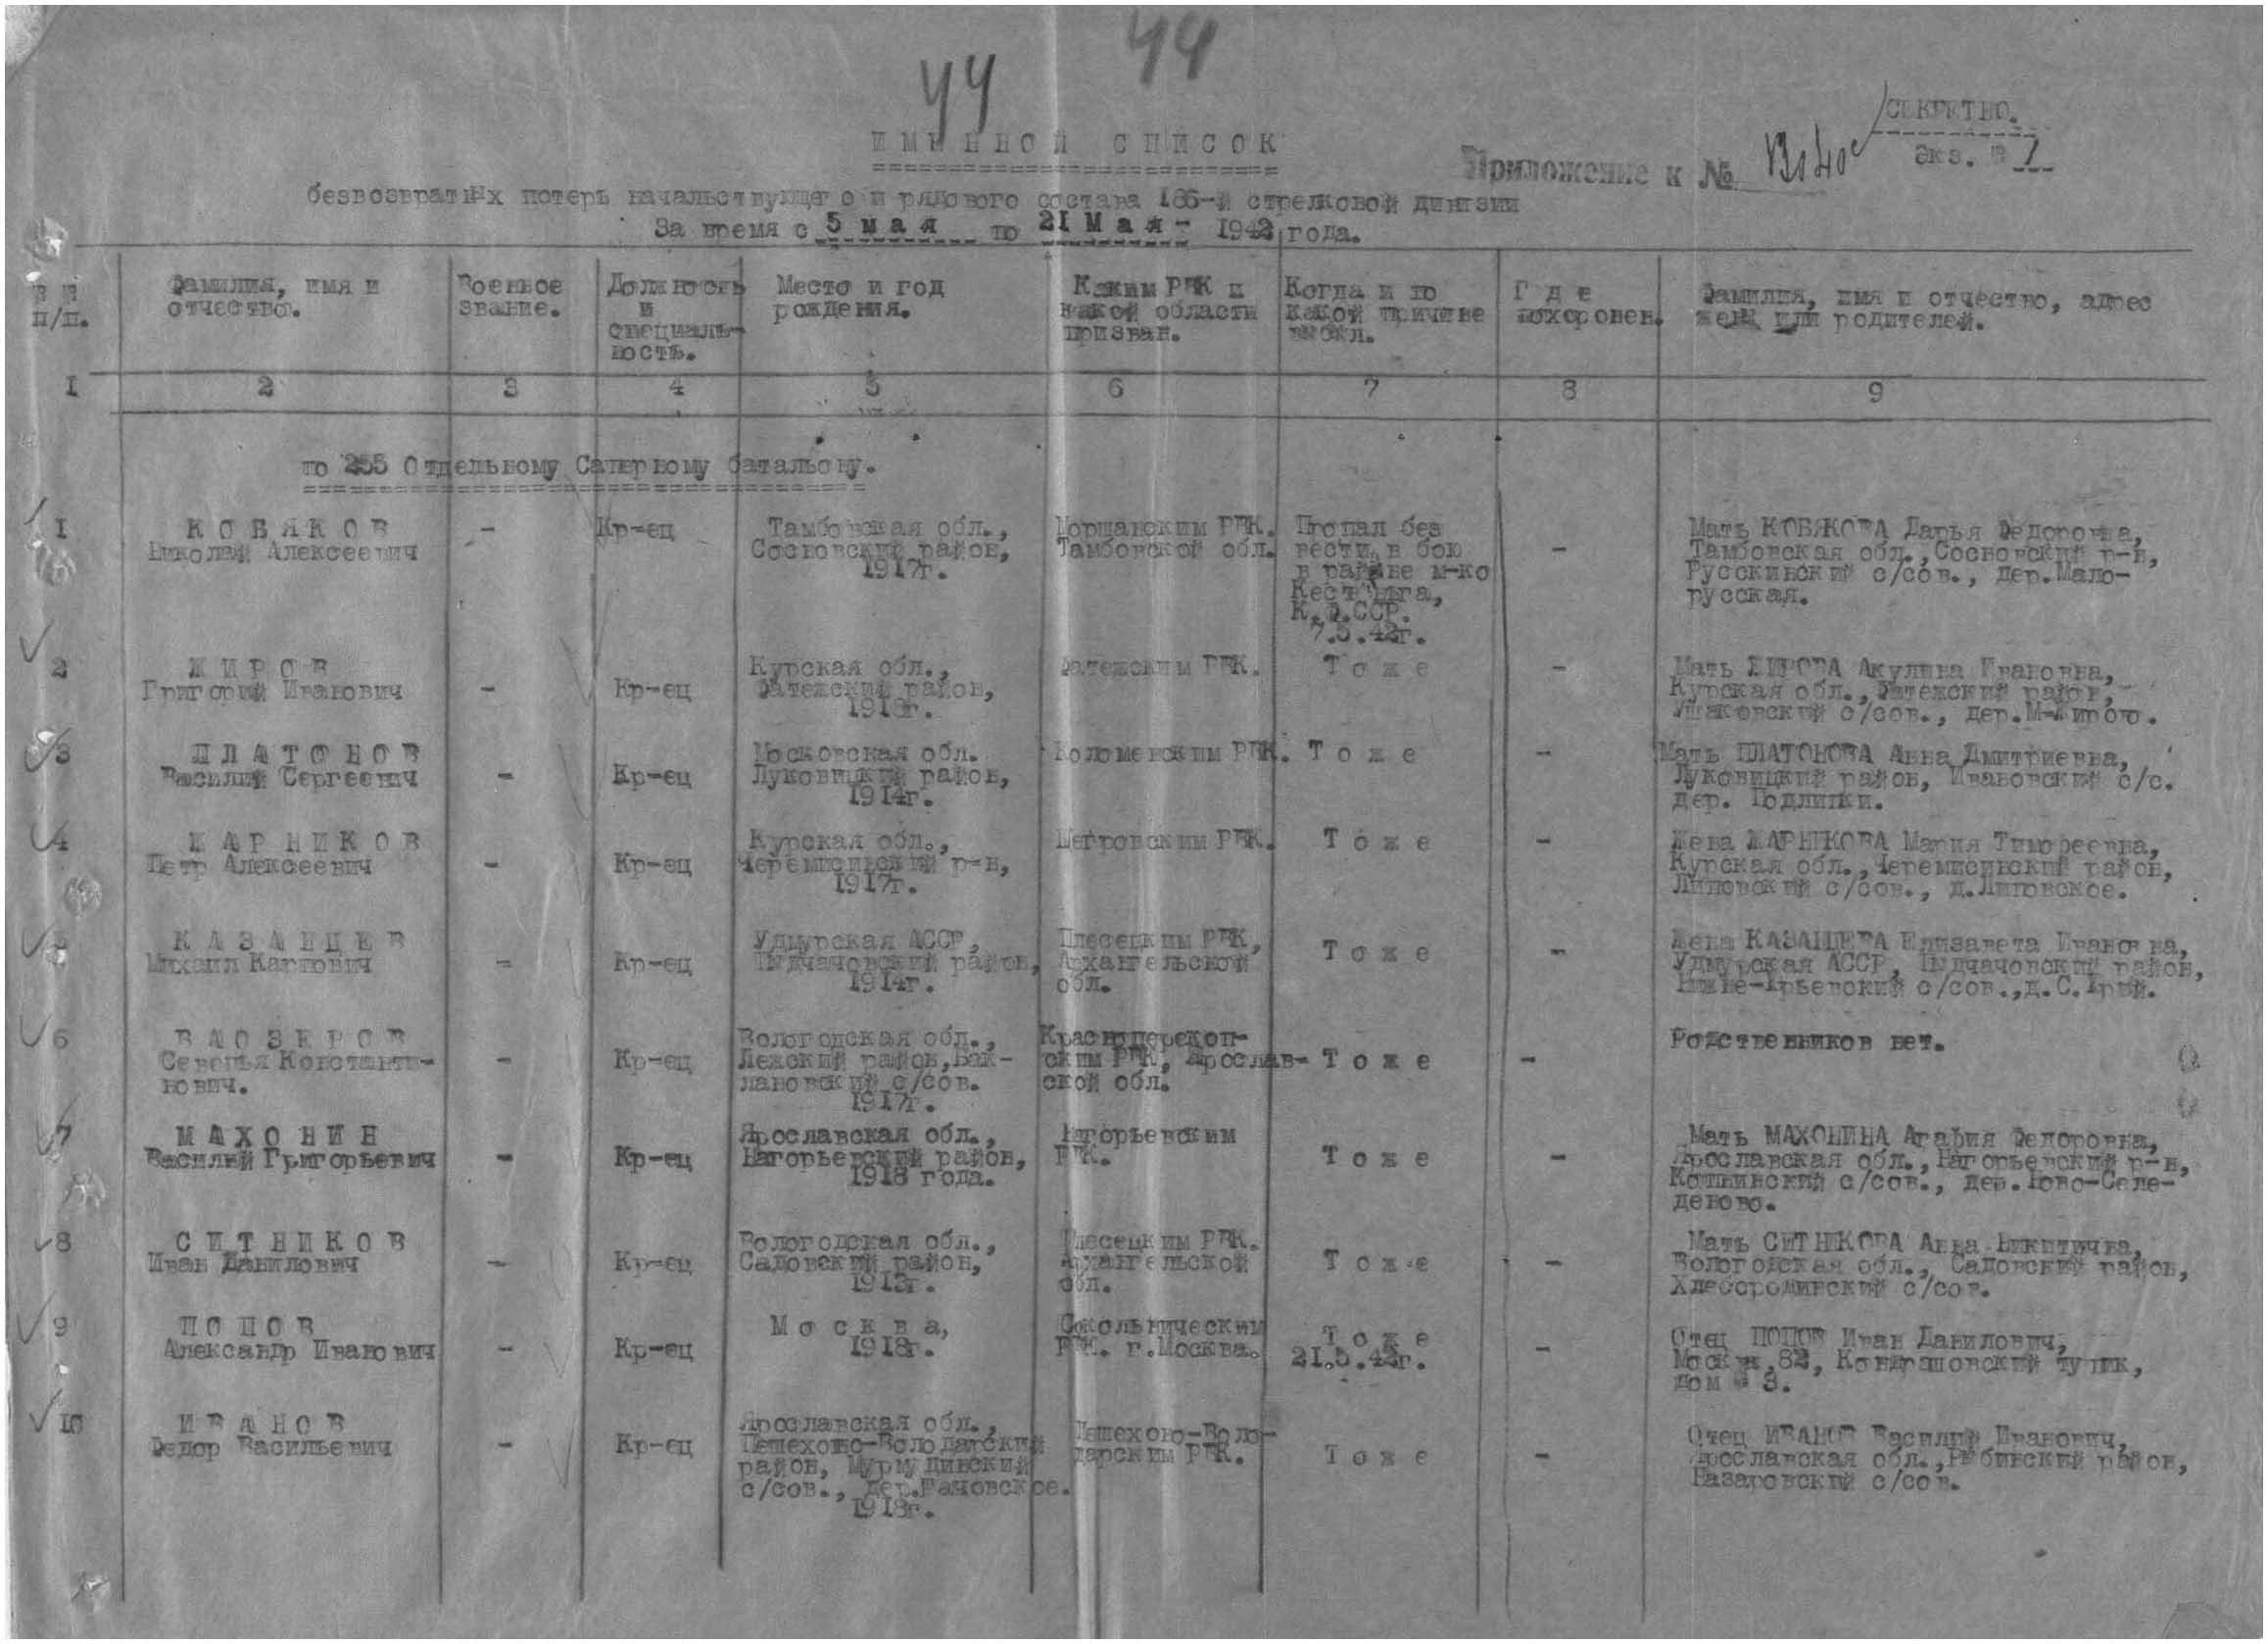 44 44
СЕКРЕТНО.
ИМЕННОЙ СПИСОК
Приложение к №
Экз. № 1
безвозвратных потерь начальствующего и рядового состава 186-й стрелковой дивизии
За время с 5 мая по 21 Мая- 1942 года.
№ №
п/п.
Фамилия, имя и
отчество.
Военное
звание.
Должность
и
специаль-
ность.
Место и год
рождения.
Каким РВК и
какой области
призван.
Когда и по
какой причине
выбыл.
Где
похоронен.
Фамилия, имя и отчество, адрес
жены или родителей.
1 2 3 4 5 6 7 8 9
по 255 Отдельному Саперному батальону.
1
КОБЯКОВ
Николай Алексеевич
-
Кр-ец
Тамбовская обл.,
Сосновский район,
1917г.
Моршанским РВК.
Тамбовской обл.
Пропал без
вести в бою
в районе м-ко
Кестеньга,
К.Ф.ССР.
7.5.42г.
-
Мать КОБЯКОВА Дарья Федоровна,
Тамбовская обл., Сосновский р-н,
Русскинский с/сов., дер.Мало-
русская.
2
ЖИРОВ
Григорий Иванович
-
Кр-ец
Курская обл.,
Фатежский район,
1918г.
Фатежским РВК.
Тоже
-
Мать ЖИРОВА Акулина Ивановна,
Курская обл., Фатежский район,
Ушаковский с/сов., дер.М-Жирово.
3
ПЛАТОНОВ
Василий Сергеевич
-
Кр-ец
Московская обл.
Луковицкий район,
1914г.
Коломенским РВК.
Тоже
-
Мать ПЛАТОНОВА Анна Дмитриевна,
Луковицкий район, Ивановский с/с.
дер. Подлипки.
4
ЖАРНИКОВ
Петр Алексеевич
-
Кр-ец
Курская обл.,
Черемисинский р-н,
1917г.
РВК.
Тоже
-
Жена ЖАРНИКОВА Мария Тимофеевна,
Курская обл., Черемисинский район,
Липовский с/сов., д.Липовское.
КАЗАНЦЕВ
Михаил Карпович
-
Кр-ец
Удмурская АССР,
Пыдчачовский район,
1914г.
Плесецким РВК,
Архангельской
обл.
Тоже
-
Жена КАЗАНЦЕВА Елизавета Ивановна,
Удмурская АССР, Пыдчачовский район,
с/сов.,
6
ВАОЗЕРОВ
Севенья Константи-
нович.
-
Кр-ец
Вологодская обл.,
Лежский район, Бак-
лановский с/сов.
1917г.
Красноперекоп-
ским РВК, Ярослав-
ской обл.
Тоже
-
Родственников нет.
7
МАХОНИН
Василий Григорьевич
-
Кр-ец
Ярославская обл.,
Нагорьевский район,
1918 года.
Нагорьевским
РВК.
Тоже
-
Мать МАХОНИНА Агафия Федоровна,
Ярославская обл., Нагорьевский р-н,
с/сов., дер.Ново-Селе-
деново.
8
СИТНИКОВ
Иван Данилович
-
Кр-ец
Вологодская обл.,
Садовский район,
1913г.
Плесецким РВК.
Архангельской
обл.
Тоже
-
Мать СИТНИКОВА Анна Никитична,
Вологодская обл., Садовский район,
с/сов.
9
ПОПОВ
Александр Иванович
-
Кр-ец
Москва,
1918г.
Сокольническим
РВК. г.Москва.
Тоже
21.5.42г.
-
Отец ПОПОВ Иван Данилович,
Москва, 82, Кондрашовский тупик,
дом № 3.
10
ИВАНОВ
Федор Васильевич
-
Кр-ец
Ярославская обл.,
Пешехоно-Володарский
район, Мурмудинский
с/сов., дер.
1918г.
Пешехоно-Воло-
дарским РВК.
Тоже
-
Отец ИВАНОВ Василий Иванович,
Ярославская обл., Рыбинский район,
Назаровский с/сов.